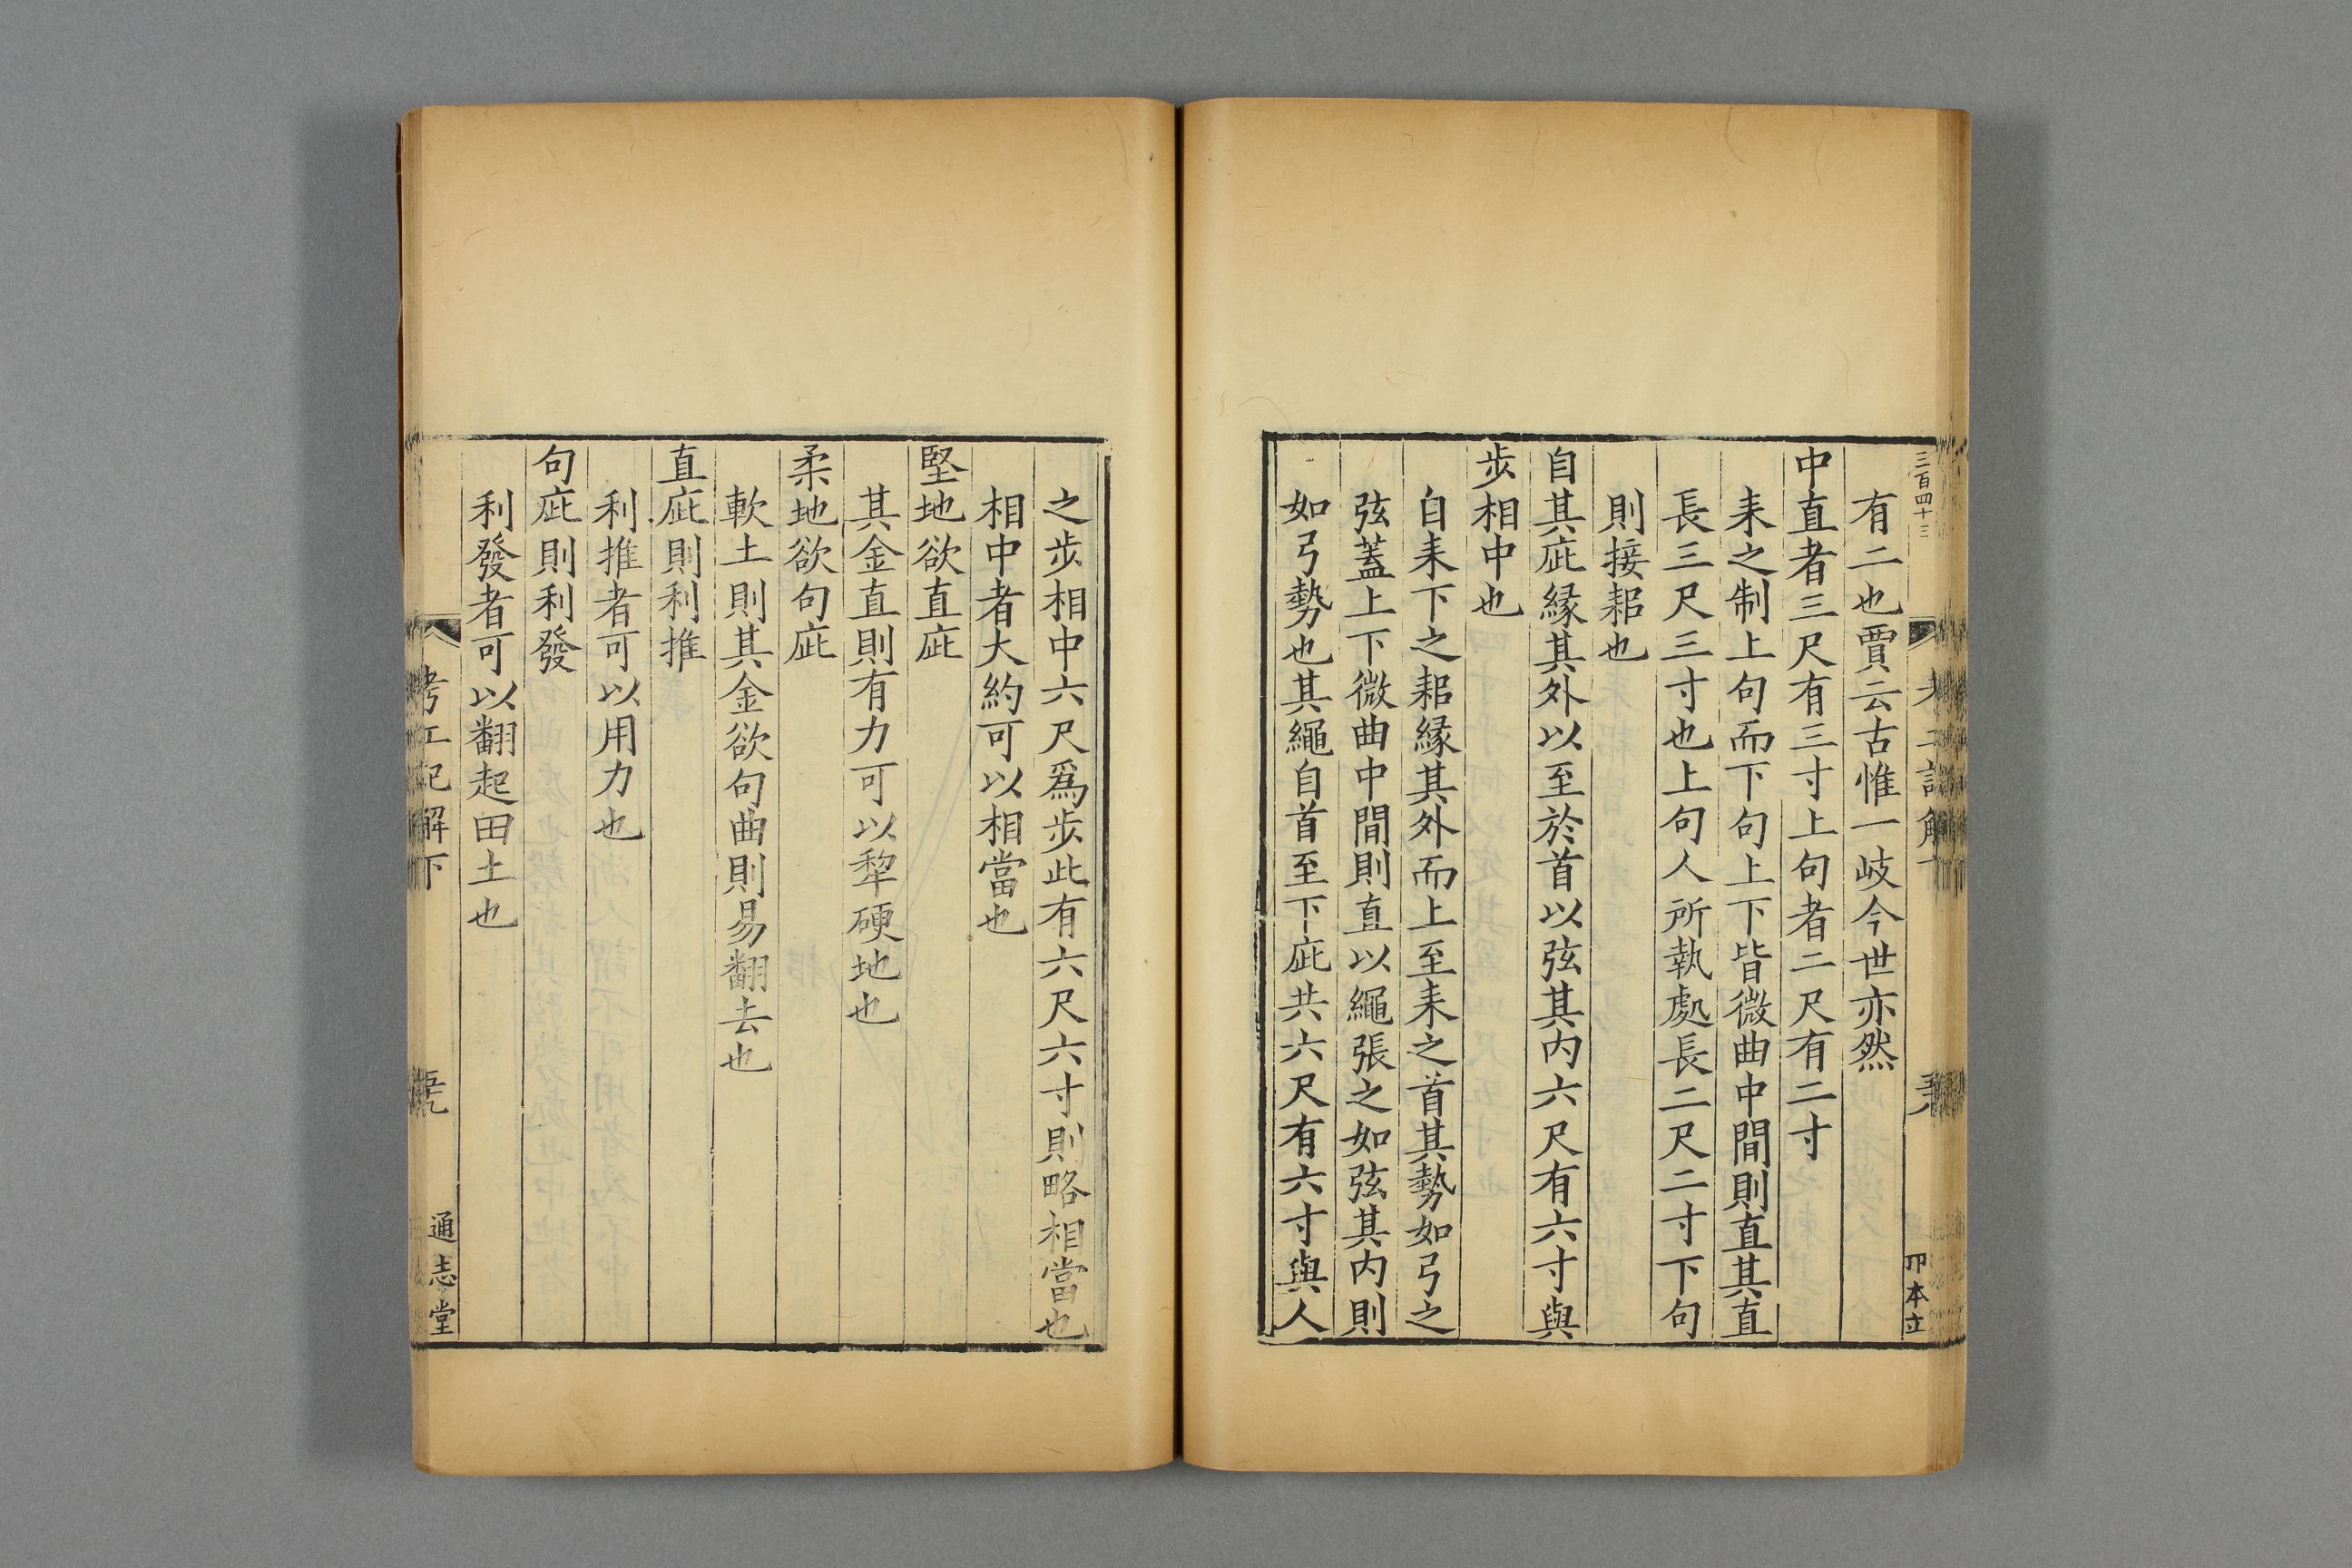 三百四十三
有二也賈云古惟一岐今世亦然
中直者三尺有三寸上句者二尺有二寸
耒之制上句而下句上下皆微曲中間則直其直
長三尺三寸也上句人所執處長二尺二寸下句
則接耜也
自其庛緣其外以至於首以弦其內六尺有六寸與
步相中也
自耒下之耜緣其外而上至耒之首其勢如弓之
弦蓋上下微曲中間則直以繩張之如弦其內則
如弓勢也其繩自首至下庛共六尺有六寸與人
之步相中六尺爲步此有六尺六寸則略相當也
相中者大約可以相當也
堅地欲直庛
其金直則有力可以犂硬地也
柔地欲句庛
軟土則其金欲句曲則易翻去也
直庛則利推
利推者可以用力也
句庛則利發
利發者可以翻起田土也
考工記解下
通志堂